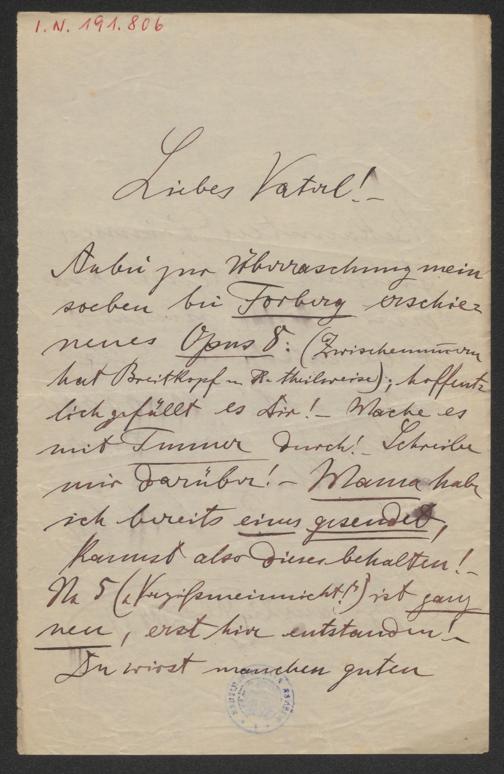 I.N. 191.806
Liebes Vaterl! –
Anbei zur Überraschung mein
soeben bei Forberg erschie-
nenes Opus 8: (Zwischennummern
hat Breitkopf u. H. theilweise); hoffent-
lich gefällt es Dir! – Mache es
mit Turner durch! – Schreibe
mir darüber! – Mama habe
ich bereits eines gesendet,
kannst also dieses behalten! –
No 5 („Vergißmeinnicht!") ist ganz
neu, erst hier entstanden –
Du wirst manchen guten